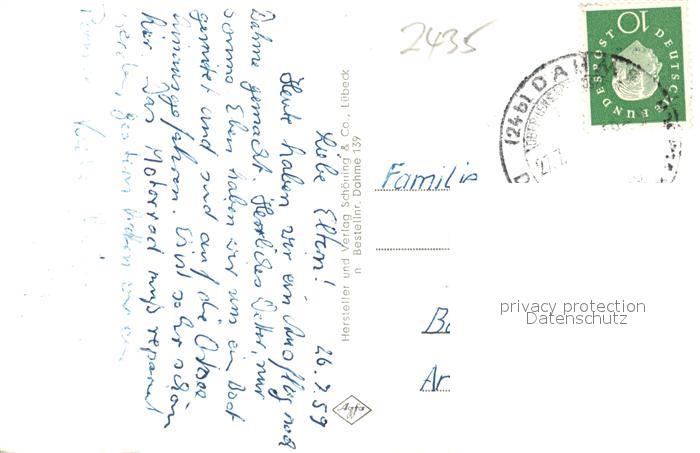 Liebe Eltern! 26.7.59
Heute haben wir ein Ausflug nach
Dahme gemacht. Herrliches Wetter, nur
Sonne. Eben haben wir uns ein Boot
gemietet und sind auf die Ostsee
hinausgefahren. Ist sehr schön
hier. Das Motorrad muß repariert
werden, gestern hatten wir ein
Hersteller und Verlag Schöning & Co., Lübeck
Bestellnr. Dahme 139
Agfa
2435
DEUTSCHE
BUNDESPOST
10
(24b) DAHME
27.7.
Familie
B
Ar
privacy protection
Datenschutz